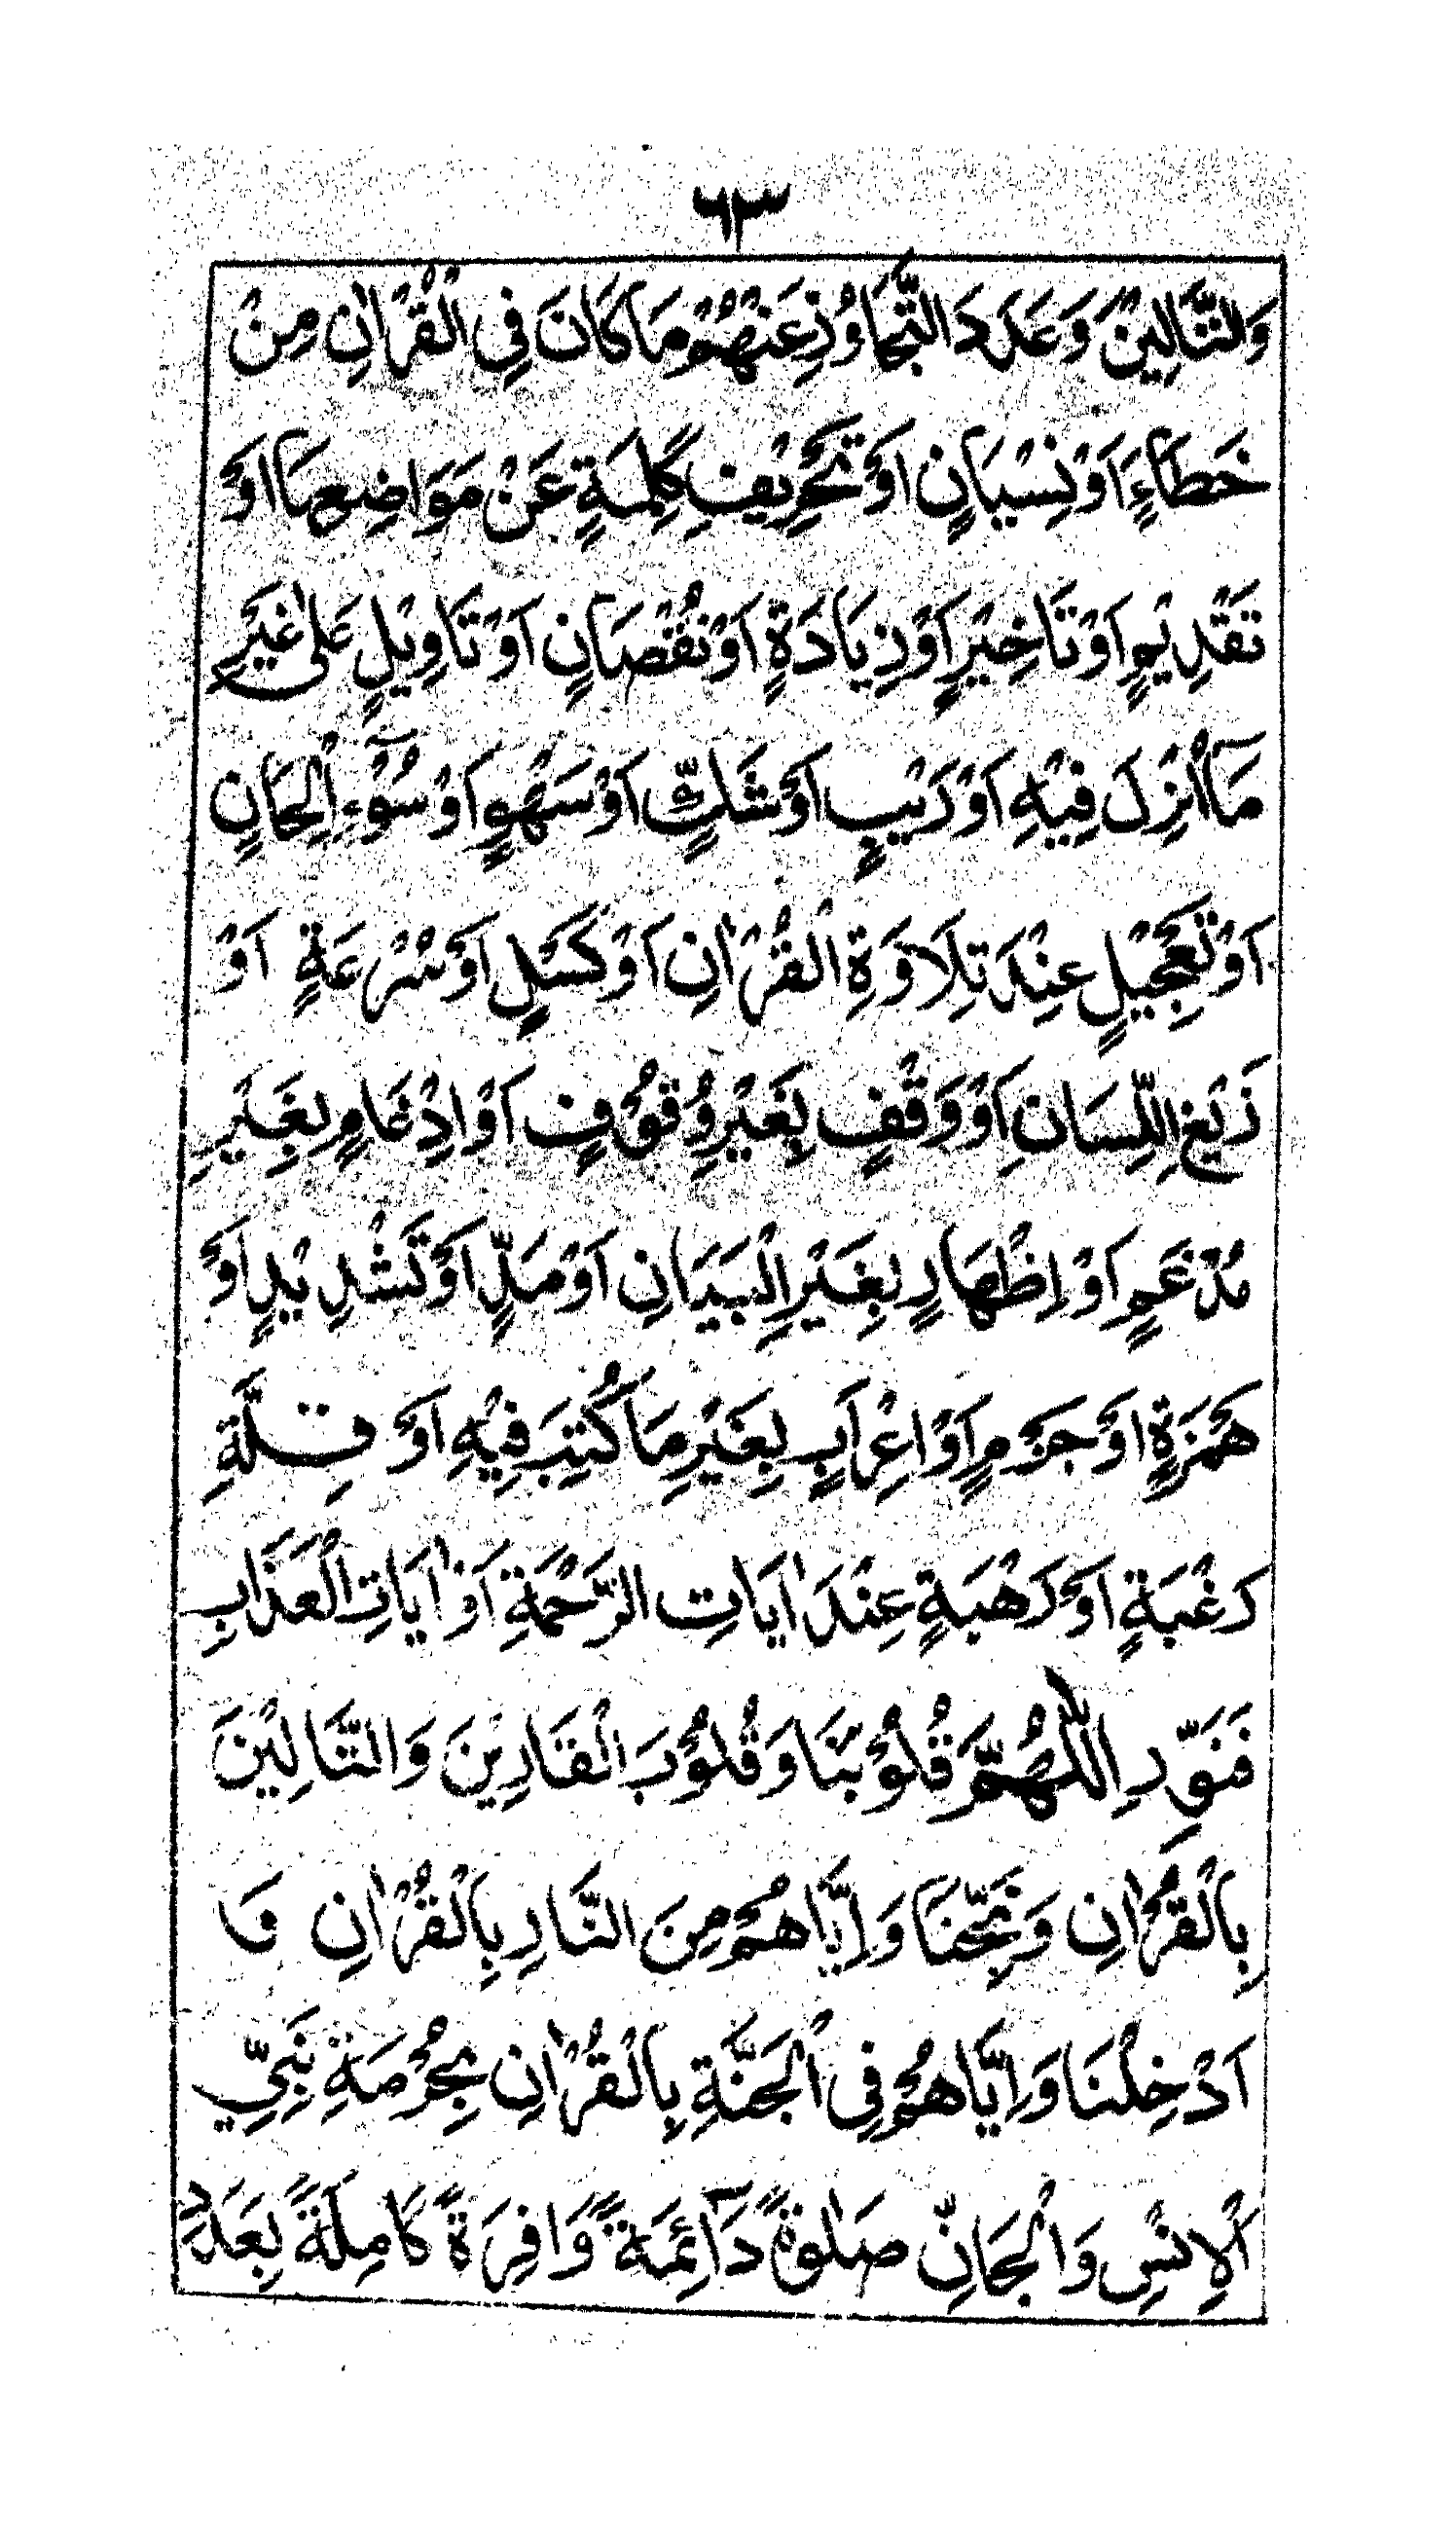 ٦٣
وَلتَّالِيْنَ وَعَدَدَ التَّجَاوُزِ عَنْهُمْ مَا كَانَ فِى الْقُرْاٰنِ مِنْ
خَطَاءٍ اَوْ نِسْيَانٍ اَوْ تَحْرِيْفِ كَلِمَةٍ عَنْ مَوَاضِعِهَا اَوْ
تَقْدِيْمٍ اَوْ تَاخِيْرٍ اَوْ زِيَادَةٍ اَوْ نُقْصَانٍ اَوْ تَاوِيْلٍ عَلٰى غَيْرِ
مَآ اُنْزِلَ فِيْهِ اَوْ رَيْبٍ اَوْ شَكٍّ اَوْ سَهْوٍ اَوْ سُوْٓءِ اِلْحَانٍ
اَوْ تَعْجِيْلٍ عِنْدَ تِلَاوَةِ الْقُرْاٰنِ اَوْ كَسَلٍ اَوْ سُرْعَةٍ اَوْ
زَيْغِ اللِّسَانِ اَوْ وَقْفٍ بِغَيْرِ وُقُوْفٍ اَوْ اِدْغَامٍ بِغَيْرِ
مُدْغَمٍ اَوْ اِظْهَارٍ بِغَيْرِ الْبَيَانِ اَوْ مَدٍّ اَوْ تَشْدِيْدٍ اَوْ
هَمْزَةٍ اَوْ جَزْمٍ اَوْ اِعْرَابٍ بِغَيْرِ مَا كُتِبَ فِيْهِ اَوْ قِلَّةِ
رَغْبَةٍ اَوْ رَهْبَةٍ عِنْدَ اٰيَاتِ الرَّحْمَةِ اَوْ اٰيَاتِ الْعَذَابِ
فَنَوِّرِ اللّٰهُمَّ قُلُوْبَنَا وَ قُلُوْبَ الْقَارِيْنَ وَ التَّالِيْنَ
بِالْقُرْاٰنِ وَ نَجِّنَا وَ اِيَّاهُمْ مِنَ النَّارِ بِالْقُرْاٰنِ وَا
اَدْخِلْنَا وَ اِيَّاهُمْ فِى الْجَنَّةِ بِالْقُرْاٰنِ بِحُرْمَةِ نَبِيِّ
اَلْاِنْسِ وَ الْجَانِّ صَلٰوةً دَآئِمَةً وَافِرَةً كَامِلَةً بِعَدَدِ